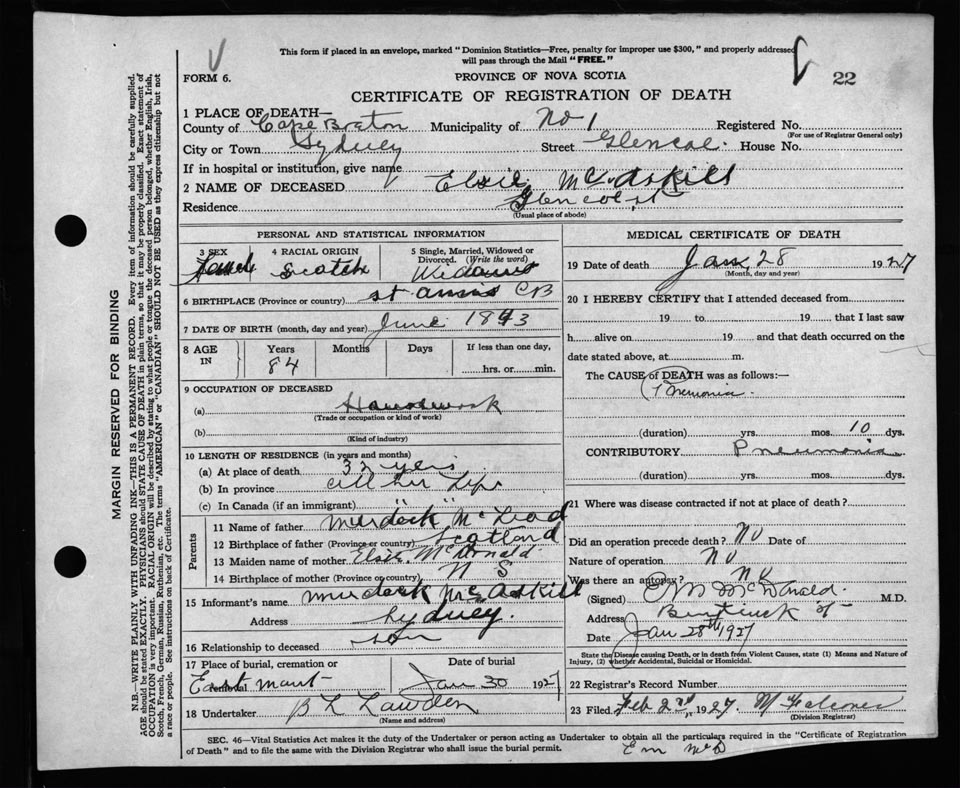 This form if placed in an envelope, marked "Dominion Statistics—Free, penalty for improper use $300," and properly addressed
will pass through the Mail "FREE."
FORM 6.
PROVINCE OF NOVA SCOTIA
22
CERTIFICATE OF REGISTRATION OF DEATH
1 PLACE OF DEATH—
County of Cape Breton Municipality of No 1 Registered No.
(For use of Registrar General only)
City or Town Sydney Street Glencoe House No.
If in hospital or institution, give name
2 NAME OF DECEASED Elsie McAskill
Residence Glencoe st
(Usual place of abode)
PERSONAL AND STATISTICAL INFORMATION
3 SEX
4 RACIAL ORIGIN Scotch
5 Single, Married, Widowed or Divorced. (Write the word)
6 BIRTHPLACE (Province or country) st CB
7 DATE OF BIRTH (month, day and year) June 1843
8 AGE IN Years 84 Months Days If less than one day, hrs. or min.
9 OCCUPATION OF DECEASED
(a) Housework
(Trade or occupation or kind of work)
(b)
(Kind of industry)
10 LENGTH OF RESIDENCE (in years and months)
(a) At place of death
(b) In province all her Life
(c) In Canada (if an immigrant) " "
Parents
11 Name of father Murdock McLeod
12 Birthplace of father (Province or country) Scotland
13 Maiden name of mother Elsie McDonald
14 Birthplace of mother (Province or country) N S
15 Informant's name Murdock McAskill
Address Sydney.
16 Relationship to deceased son
17 Place of burial, cremation or removal East mount
Date of burial Jan 30 1927
18 Undertaker B L
(Name and address)
MEDICAL CERTIFICATE OF DEATH
19 Date of death Jan 28 1927
(Month, day and year)
20 I HEREBY CERTIFY that I attended deceased from
19 to 19 that I last saw
h alive on 19 and that death occurred on the
date stated above, at m.
The CAUSE of DEATH was as follows:—
(duration) yrs. mos. 10 dys.
CONTRIBUTORY Pneumonia
(duration) yrs. mos. dys.
21 Where was disease contracted if not at place of death?
Did an operation precede death? No Date of
Nature of operation No
Was there an autopsy? No
(Signed) McDonald M.D.
Address
Date Jan 28th 1927
State the Disease causing Death, or in death from Violent Causes, state (1) Means and Nature of
Injury, (2) whether Accidental, Suicidal or Homicidal.
22 Registrar's Record Number
23 Filed, Feb 2nd, 1927
(Division Registrar)
SEC. 46—Vital Statistics Act makes it the duty of the Undertaker or person acting as Undertaker to obtain all the particulars required in the "Certificate of Registration
of Death" and to file the same with the Division Registrar who shall issue the burial permit.
E M McD
MARGIN RESERVED FOR BINDING
N.B.—WRITE PLAINLY WITH UNFADING INK—THIS IS A PERMANENT RECORD. Every item of information should be carefully supplied.
AGE should be stated EXACTLY. PHYSICIANS should STATE CAUSE OF DEATH in plain terms, so that it may be properly classified. Exact statement of
OCCUPATION is very important. RACIAL ORIGIN will be described by stating to what people or tongue the deceased person belonged, whether English, Irish,
Scotch, French, German, Russian, Ruthenian, etc. The terms "AMERICAN" or "CANADIAN" SHOULD NOT BE USED as they express citizenship but not
a race or people. See instructions on back of Certificate.